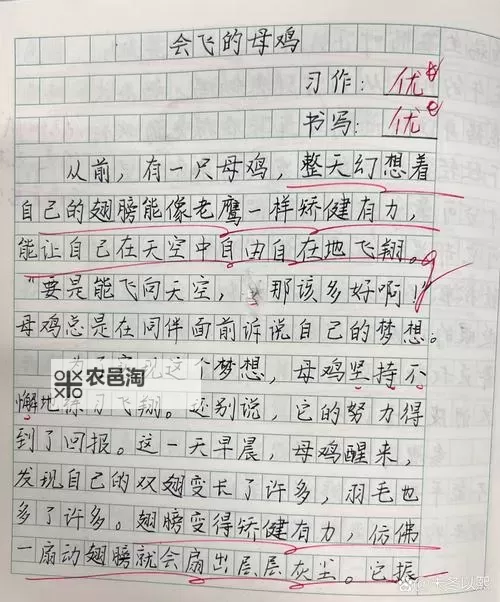 会飞的母鸡
习作：优
书写：优
从前，有一只母鸡，整天幻想着
自己的翅膀能像老鹰一样矫健有力，
能让自己在天空中自由自在地飞翔。
“要是能飞向天空，那该多好啊！”
母鸡总是在同伴面前诉说自己的梦想。
现这个梦想，母鸡坚持不
农邑淘
懈地练习飞翔。还别说，它的努力得
到了回报。这一天早晨，母鸡醒来，
发现自己的双翅变长了许多，羽毛也
多了许多。翅膀变得矫健有力，仿佛
一扇动翅膀就会扇出层层灰尘。它振